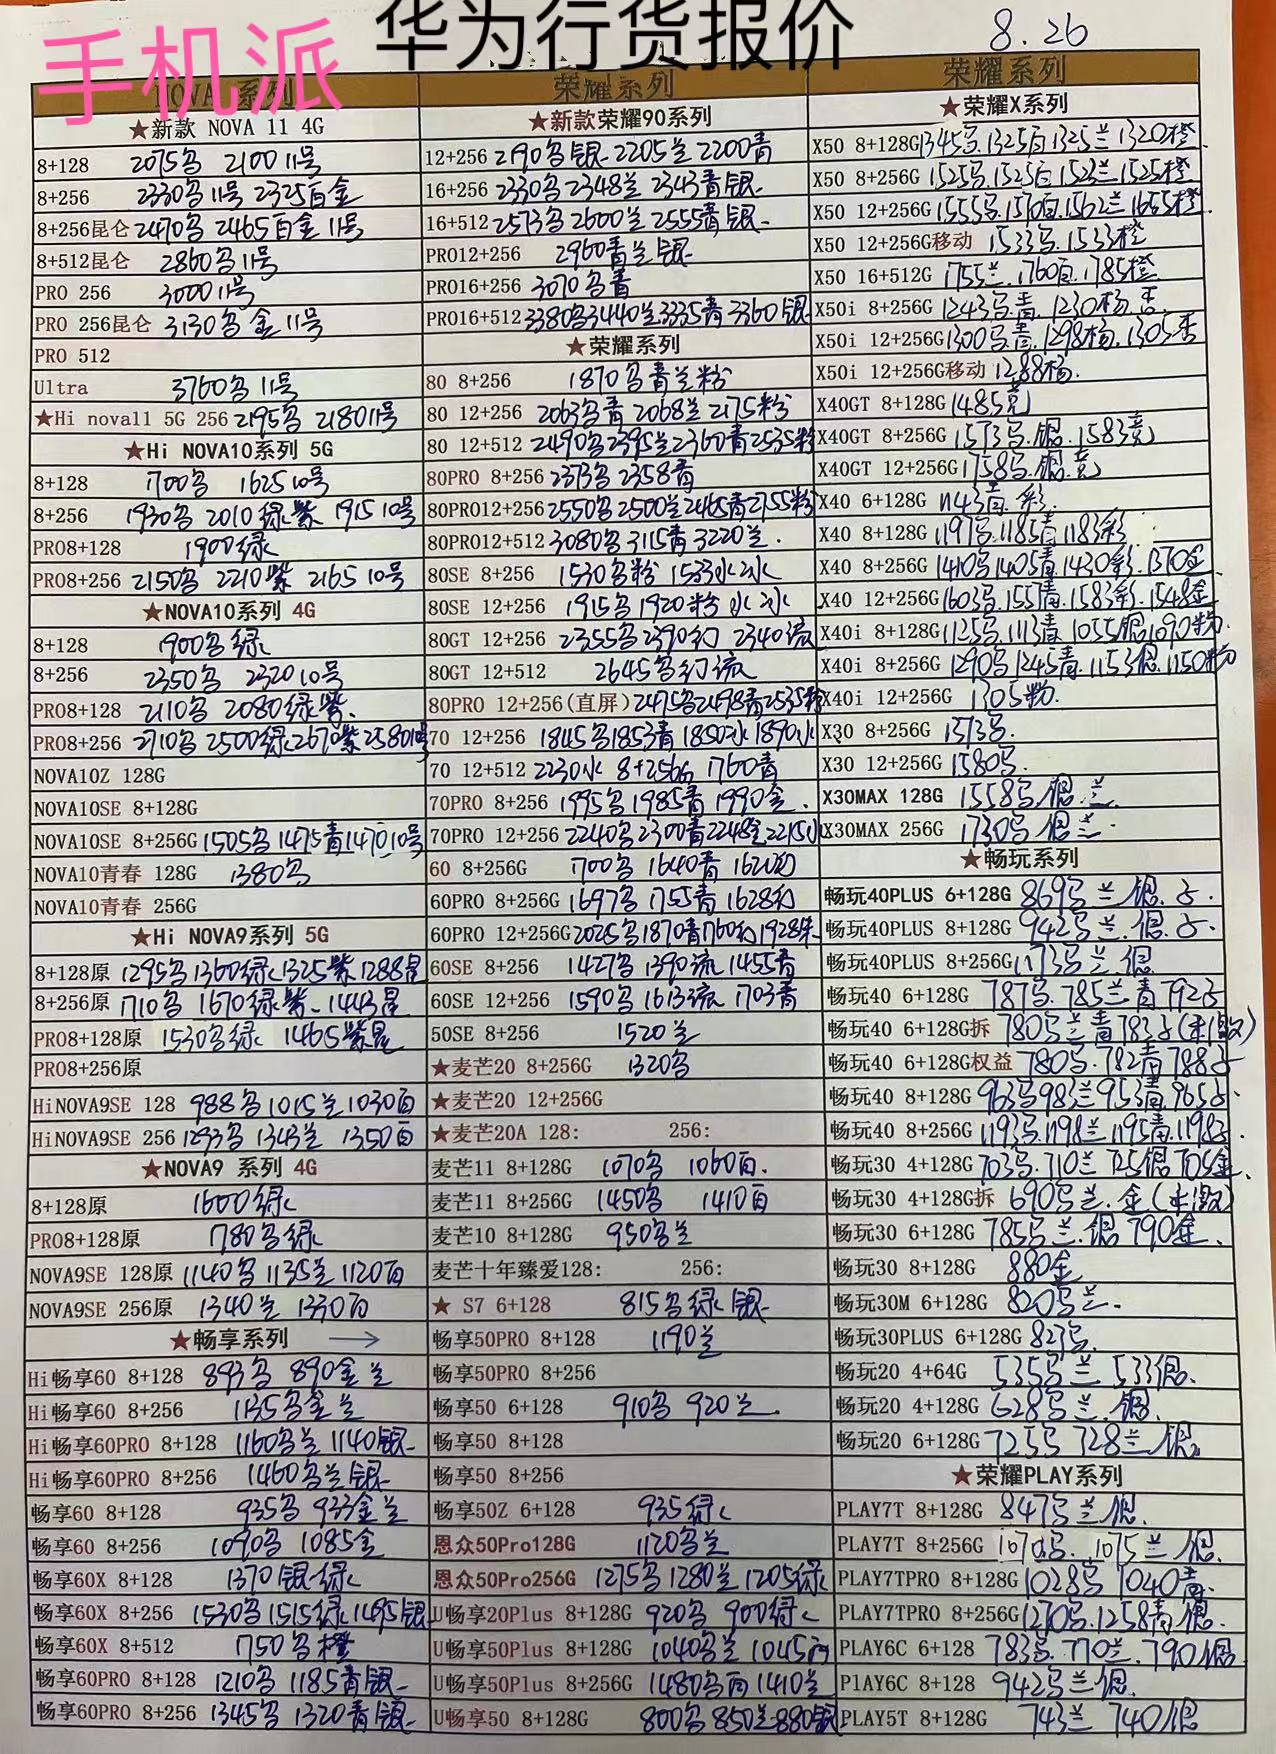 手机派
华为行货报价
8.26
NOVA系列
★新款 NOVA 11 4G
8+128 2075 2100 11号
8+256 2330 11号 2325白金
8+256昆仑 2470 2465白金 11号
8+512昆仑 2860 11号
PRO 256 3000 11号
PRO 256昆仑 3130 金 11号
PRO 512
Ultra 3760 11号
★Hi nova11 5G 256 2195 2180 11号
★Hi NOVA10系列 5G
8+128 1700 1625 10号
8+256 1930 2010绿紫 1915 10号
PRO8+128 1900绿
PRO8+256 2150 2210紫 2165 10号
★NOVA10系列 4G
8+128 1900 绿
8+256 2350 2320 10号
PRO8+128 2110 2080绿紫
PRO8+256 2710 2500绿 2670紫 2580 10号
NOVA10Z 128G
NOVA10SE 8+128G
NOVA10SE 8+256G 1505 1475青 1470 10号
NOVA10青春 128G 1380
NOVA10青春 256G
★Hi NOVA9系列 5G
8+128原 1295 1360绿 1325紫 1288
8+256原 1710 1670绿紫 1443
PRO8+128原 1530 绿 1465紫
PRO8+256原
HiNOVA9SE 128 988 1015兰 1030白
HiNOVA9SE 256 1293 1343兰 1350白
★NOVA9 系列 4G
8+128原 1600绿
PRO8+128原 1780 绿
NOVA9SE 128原 1140 1135兰 1120白
NOVA9SE 256原 1340兰 1330白
★畅享系列 →
Hi畅享60 8+128 893 890金兰
Hi畅享60 8+256 1135 金兰
Hi畅享60PRO 8+128 1160 兰 1140银
Hi畅享60PRO 8+256 1460 兰银
畅享60 8+128 935 933金兰
畅享60 8+256 1090 1085金
畅享60X 8+128 1370银绿
畅享60X 8+256 1530 1515绿 1495银
畅享60X 8+512 1750 橙
畅享60PRO 8+128 1210 1185青银
畅享60PRO 8+256 1345 1320青银
荣耀系列
★新款荣耀90系列
12+256 2190 银 2205兰 2200青
16+256 2330 2348兰 2343青银
16+512 2573 2600兰 2555青银
PRO12+256 2960青兰银
PRO16+256 3070 青
PRO16+512 3380 3440兰 3335青 3360银
★荣耀系列
80 8+256 1870 青兰粉
80 12+256 2063 青 2068兰 2175粉
80 12+512 2490 2395兰 2360青 2535粉
80PRO 8+256 2373 2358青
80PRO12+256 2550 2500兰 2465青 2755粉
80PRO12+512 3080 3115青 3220兰
80SE 8+256 1530 粉 1533水冰
80SE 12+256 1915 1920粉水冰
80GT 12+256 2355 2390幻 2340流
80GT 12+512 2645 幻流
80PRO 12+256(直屏) 2475 2498青 2535粉
70 12+256 1845 1853青 1850冰 1890水
70 12+512 2230水 8+256G 1760青
70PRO 8+256 1995 1985青 1990金
70PRO 12+256 2240 2300青 2248金 2215
60 8+256G 1700 1640青 1620幻
60PRO 8+256G 1697 1755青 1628幻
60PRO 12+256G 2025 1870青 1760幻 1928朱
60SE 8+256 1427 1390流 1455青
60SE 12+256 1590 1613流 1703青
50SE 8+256 1520兰
★麦芒20 8+256G 1320
★麦芒20 12+256G
★麦芒20A 128: 256:
麦芒11 8+128G 1070 1060白
麦芒11 8+256G 1450 1410白
麦芒10 8+128G 950 兰
麦芒十年臻爱128: 256:
★ S7 6+128 815 绿银
畅享50PRO 8+128 1190兰
畅享50PRO 8+256
畅享50 6+128 910 920兰
畅享50 8+128
畅享50 8+256
畅享50Z 6+128 935绿
恩众50Pro128G 1120 兰
恩众50Pro256G 1275 1280兰 1205绿
U畅享20Plus 8+128G 920 900绿
U畅享50Plus 8+128G 1040 兰 1045白
U畅享50Plus 8+256G 1480 白 1410兰
U畅享50 8+128G 800 850兰 880银
荣耀系列
★荣耀X系列
X50 8+128G 1345 1325白 1325兰 1320橙
X50 8+256G 1525 1525白 1523兰 1525橙
X50 12+256G 1555 1570白 1562兰 1655橙
X50 12+256G移动 1533 1533橙
X50 16+512G 1755兰 1760白 1785橙
X50i 8+256G 1243 青 1230杨 杏
X50i 12+256G 1300 青 1298杨 1305杏
X50i 12+256G移动 1288杨
X40GT 8+128G 1485竞
X40GT 8+256G 1573 银 1583竞
X40GT 12+256G 1758 银竞
X40 6+128G 1143青彩
X40 8+128G 1197 1185青 1183彩
X40 8+256G 1410 1405青 1430彩 1370金
X40 12+256G 1603 1557青 1583彩 1548金
X40i 8+128G 1125 1113青 1055银 1090粉
X40i 8+256G 1290 1245青 1153银 1150粉
X40i 12+256G 1305粉
X30 8+256G 1573
X30 12+256G 1580
X30MAX 128G 1558 银兰
X30MAX 256G 1730 银兰
★畅玩系列
畅玩40PLUS 6+128G 869 兰银
畅玩40PLUS 8+128G 942 兰银
畅玩40PLUS 8+256G 1173 兰银
畅玩40 6+128G 787 785兰青 792
畅玩40 6+128G拆 780 兰青 783 (未激)
畅玩40 6+128G权益 780 782青 788
畅玩40 8+128G 963 983兰 953青 965
畅玩40 8+256G 1193 1198兰 1195青 1198
畅玩30 4+128G 703 710兰 725银 705金
畅玩30 4+128G拆 690 兰金(未激)
畅玩30 6+128G 785 兰银 790金
畅玩30 8+128G 880金
畅玩30M 6+128G 820 兰
畅玩30PLUS 6+128G 827
畅玩20 4+64G 535 兰 533银
畅玩20 4+128G 628 兰银
畅玩20 6+128G 725 728兰银
★荣耀PLAY系列
PLAY7T 8+128G 847 兰银
PLAY7T 8+256G 1070 1075兰银
PLAY7TPRO 8+128G 1028 1040青
PLAY7TPRO 8+256G 1270 1258青银
PLAY6C 6+128 783 770兰 790银
PlAY6C 8+128 942 兰银
PLAY5T 8+128G 743兰 740银